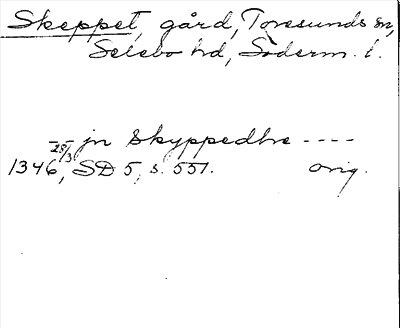 Skeppet, gård, Toresunds sn,
Selebo hd, Söderm. l.
– – jn Skyppedhe - - - -
1346 28/3, SD 5, s. 551. orig.